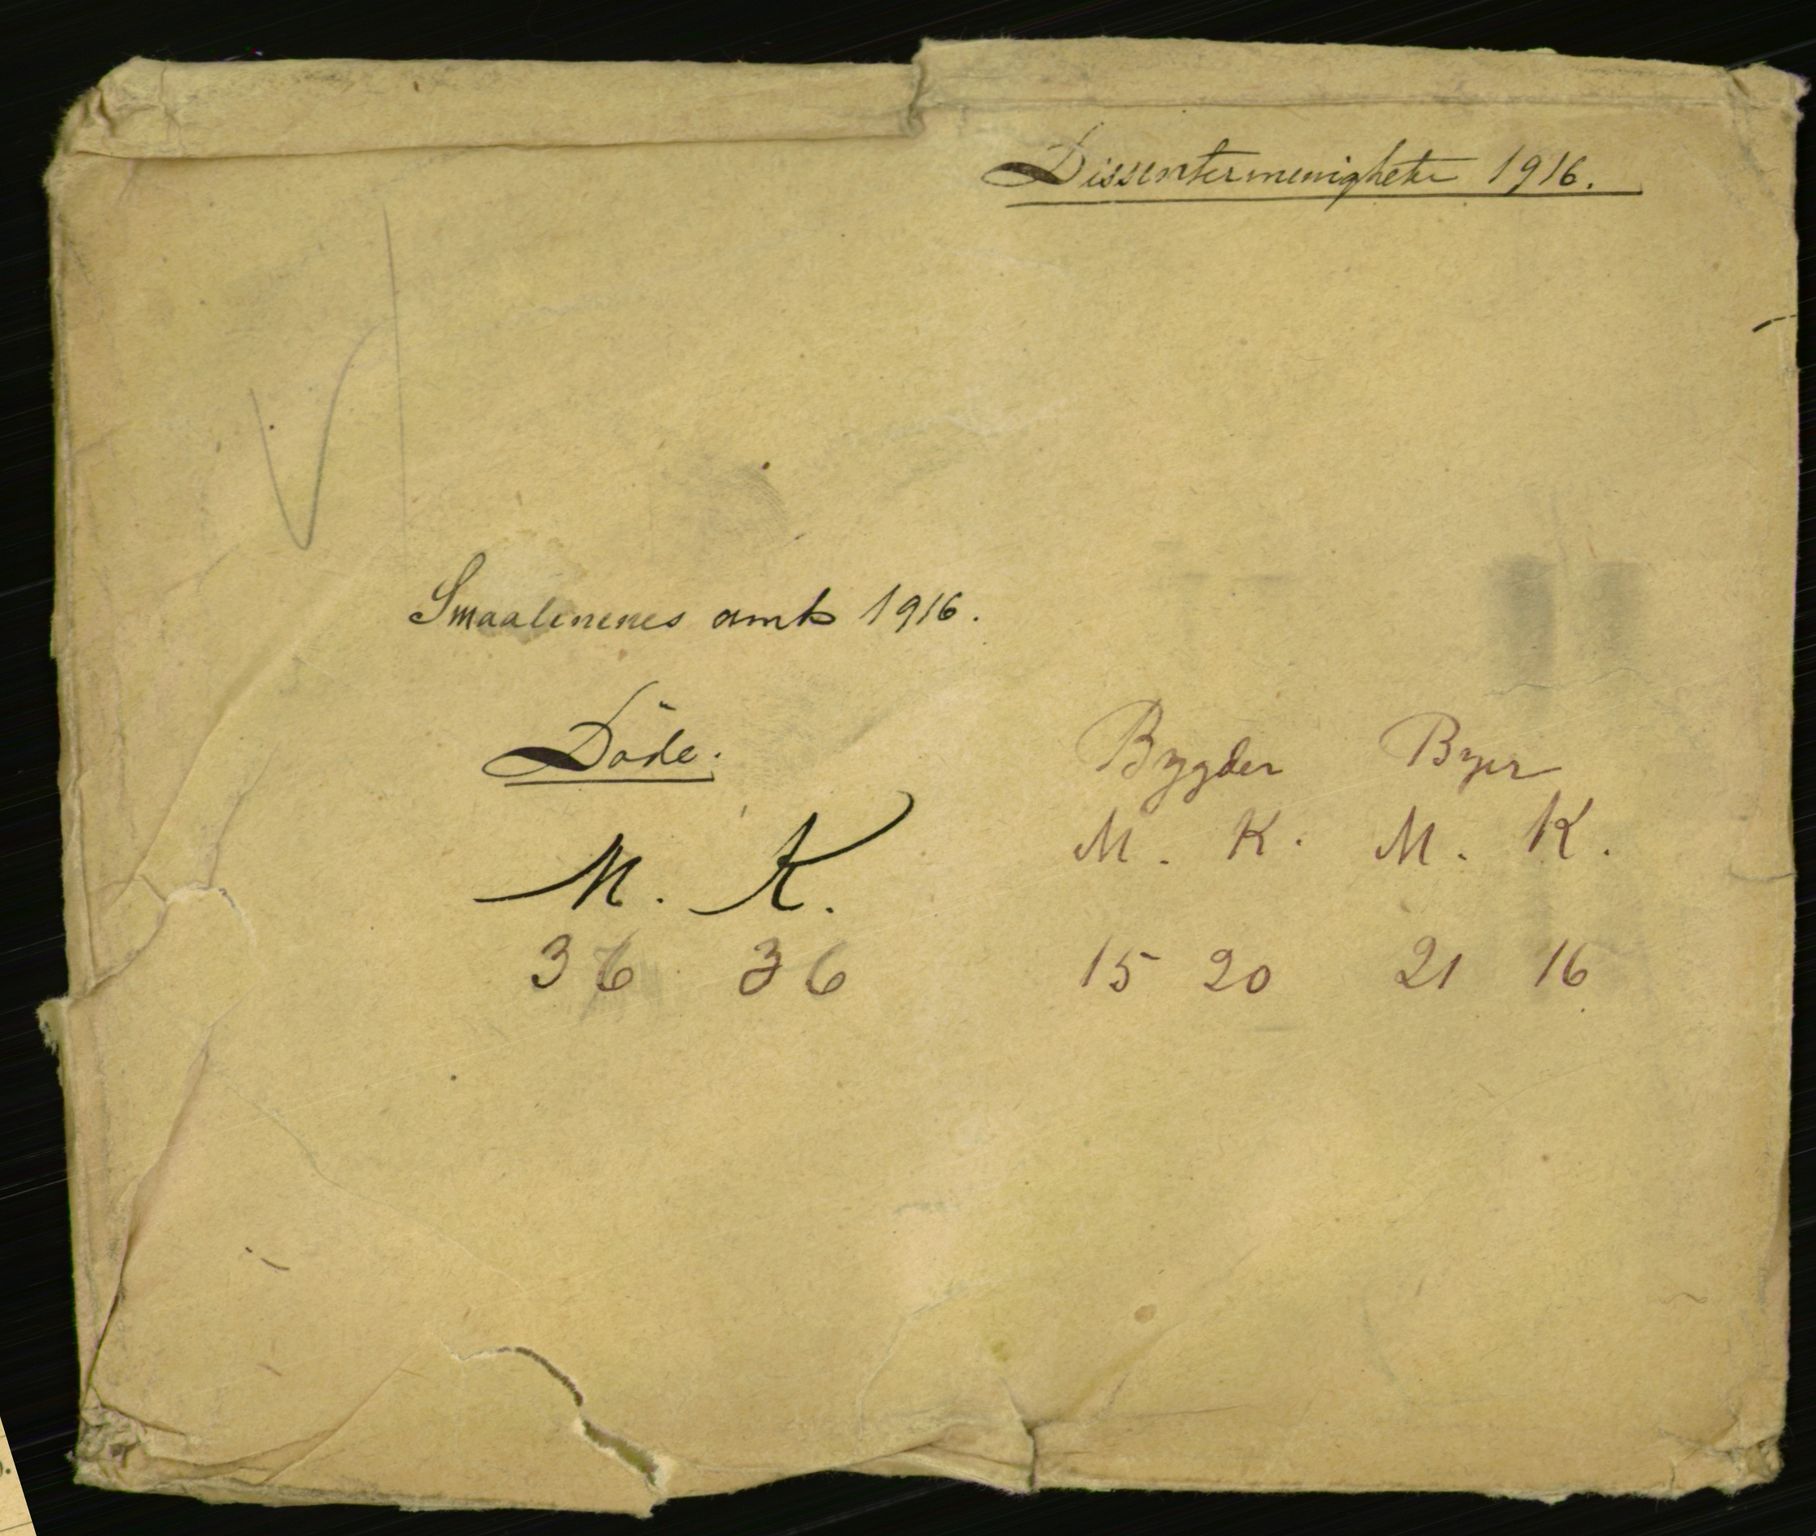 Dissentermenigheter 1916.
Smaalenenes amt 1916.
Döde.
M. K.
36 36
Bygder Byer
M. K. M. K.
15 20 21 16